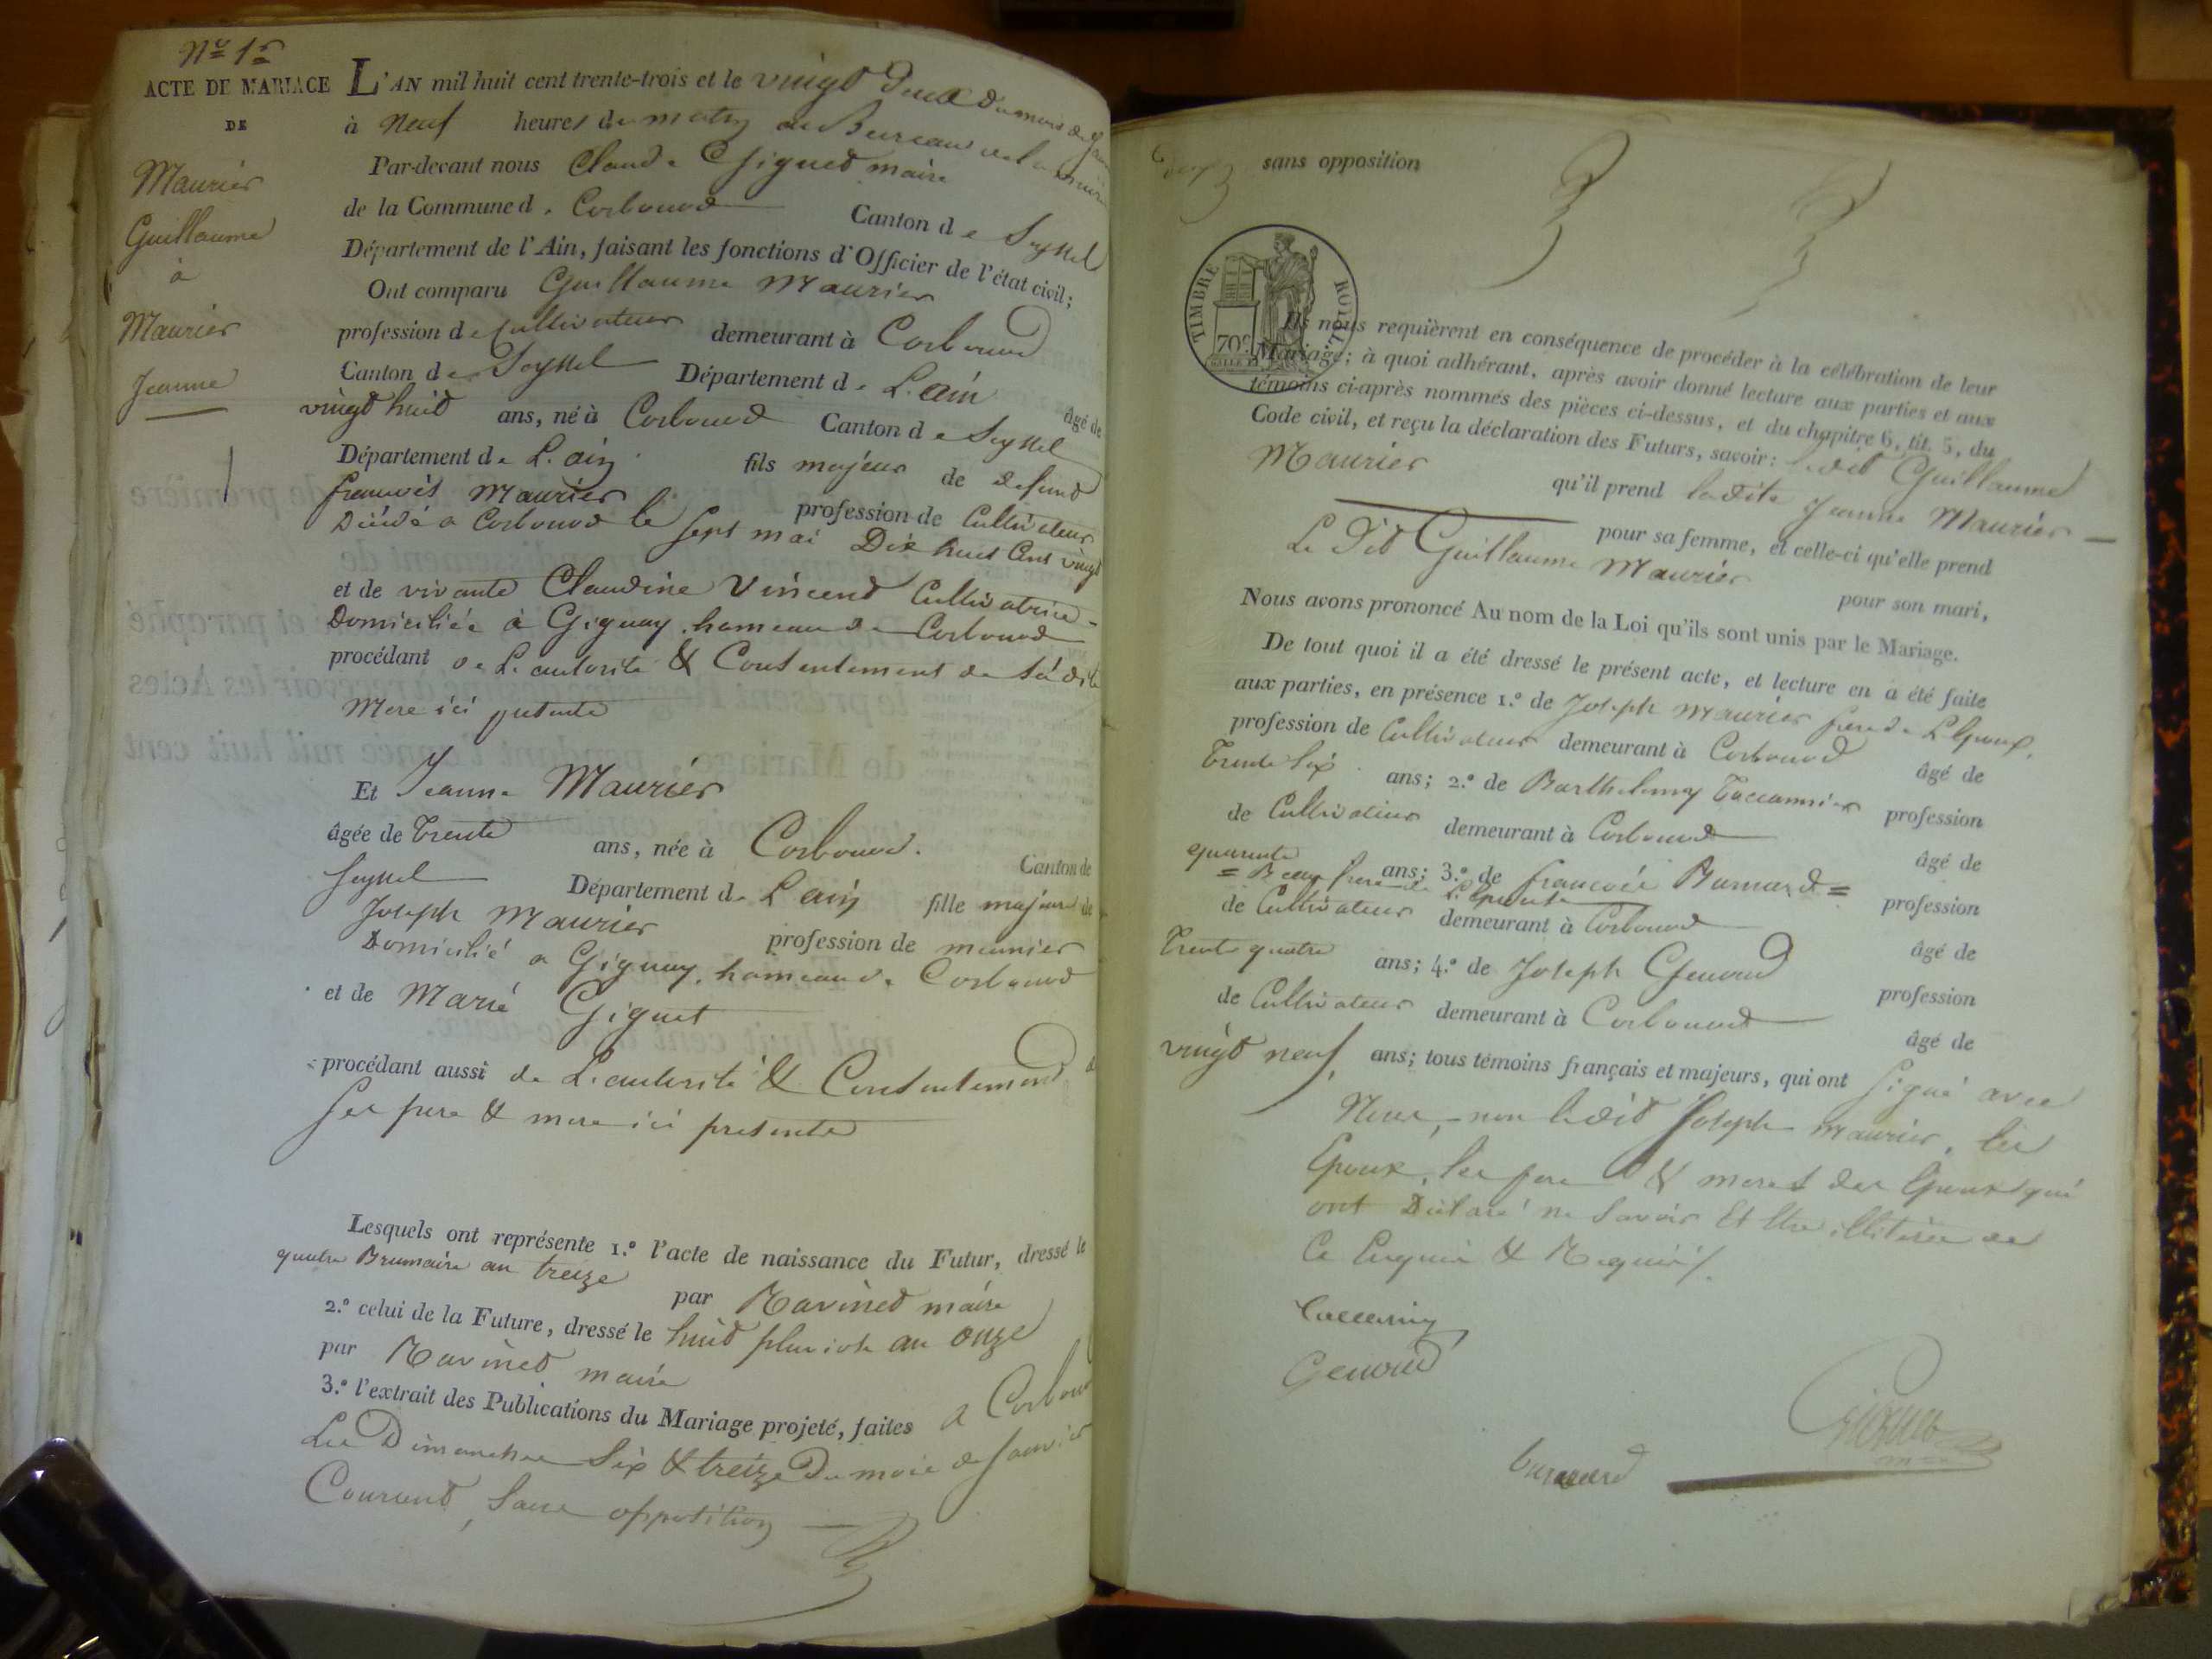 N.º 1er
ACTE DE MARIAGE
DE
Maurier
Guillaume
à
Maurier
Jeanne
L'AN mil huit cent trente-trois et le vingt Deux du mois de
à Neuf heures du matin au Bureau de la mairie
Par-devant nous Claude Giguet maire
de la Commune d. Corbonod Canton de Seyssel
Département de l'Ain, faisant les fonctions d'Officier de l'état civil;
Ont comparu Guillaume Maurier
profession de Cultivateur demeurant à Corbonod
Canton de Seyssel Département d. L'ain âgé de
vingt huit ans, né à Corbonod Canton de Seyssel
Département de L'ain fils majeur de defunt
francois Maurier profession de Cultivateur
Décédé a Corbonod le sept mai Dix huit Cent vingt
et de vivante Claudine Vincend Cultivatrice
Domiciliée à Gignay hameau de Corbonod
procédant de L'autorité & Consentement de sa dite
Mere ici presente
Et Jeanne Maurier
âgée de trente ans, née à Corbonod. Canton de
Seyssel Département de L'ain fille majeure de
Joseph Maurier profession de meunier
Domicilié a Gignay hameau de Corbonod
et de Marie Giguet
procédant aussi de L'autorité & Consentement de
ses pere & mere ici presents
Lesquels ont représente 1.º l'acte de naissance du Futur, dressé le
quatre Brumaire an treize par Ravinet maire
2.º celui de la Future, dressé le huit pluviose an onze
par Ravinet maire
3.º l'extrait des Publications du Mariage projeté, faites a Corbonod
Les Dimanches Six & treize Du mois de Janvier
Courant, sans opposition
sans opposition
TIMBRE ROYAL
70c
Ils nous requièrent en conséquence de procéder à la célébration de leur
Mariage; à quoi adhérant, après avoir donné lecture aux parties et aux
témoins ci-après nommés des pièces ci-dessus, et du chapitre 6, tit. 5, du
Code civil, et reçu la déclaration des Futurs, savoir: ledit Guillaume
Maurier qu'il prend ladite Jeanne Maurier
pour sa femme, et celle-ci qu'elle prend
Le Dit Guillaume Maurier pour son mari,
Nous avons prononcé Au nom de la Loi qu'ils sont unis par le Mariage.
De tout quoi il a été dressé le présent acte, et lecture en a été faite
aux parties, en présence 1.º de Joseph Maurier frere de L'Epoux,
profession de Cultivateur demeurant à Corbonod âgé de
trente six ans; 2.º de Barthelemy profession
de Cultivateur demeurant à Corbonod âgé de
quarante ans; 3.º de francois Burnard =
= Beau frere de L'Epouse profession
de Cultivateur demeurant à Corbonod âgé de
trente quatre ans; 4.º de Joseph Genoud profession
de Cultivateur demeurant à Corbonod âgé de
vingt neuf, ans; tous témoins français et majeurs, qui ont signé avec
Nous, non ledit Joseph Maurier, les
Epoux, les pere & meres des Epoux qui
ont Déclaré ne savoir Et être illitérés de
Ce Enquis & Requis.
Genoud
Giguet
Burnard